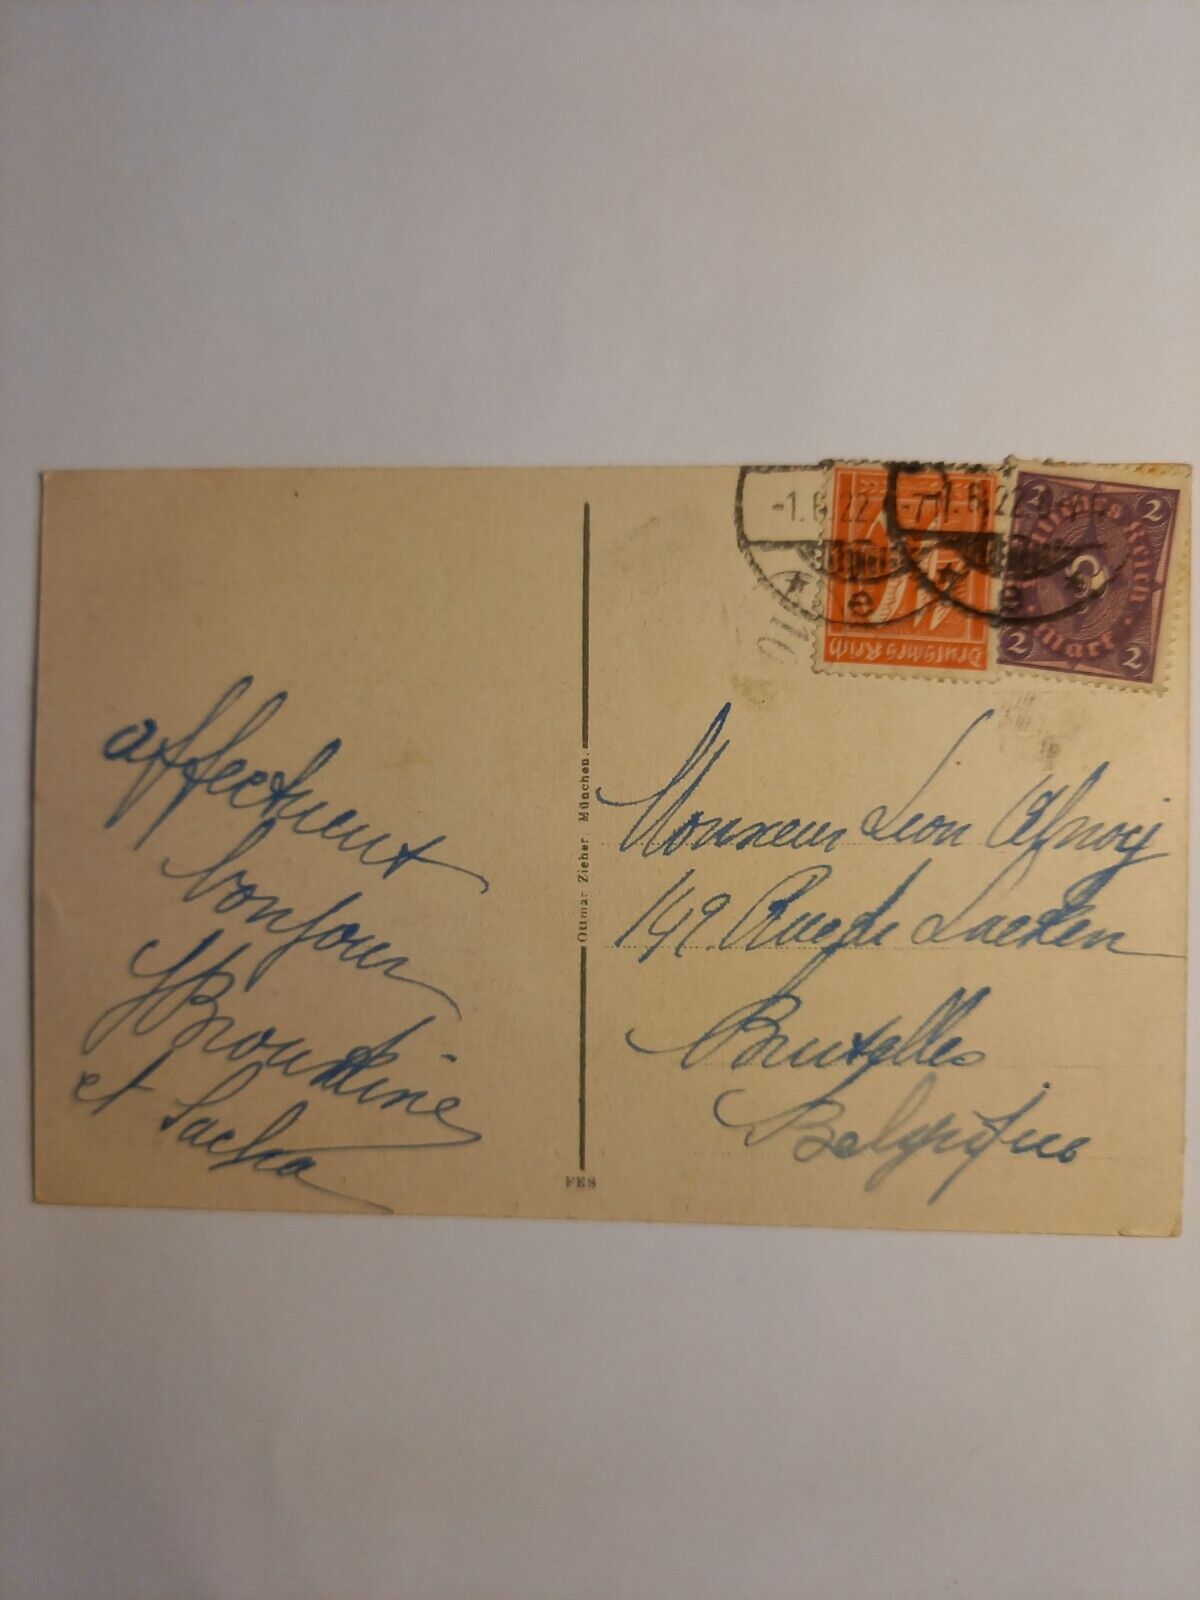 affectueux
bonjour
et Sacha
Ottmar Zieher, München.
FES
-1.6.22
Deutsches Reich
-1.6.22
2 2
Deutsches Reich
2 Mark 2
Monsieur Leon
149 Rue de Laeken
Bruxelles
Belgique